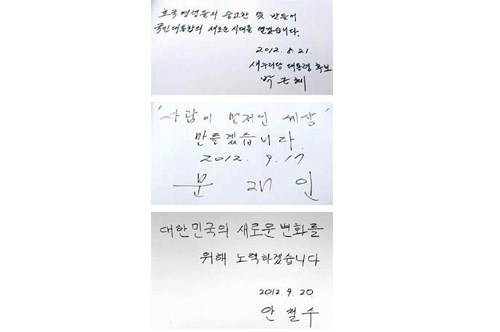 호국영령들의 숭고한 뜻 받들어
국민대통합의 새로운 시대를 열겠습니다.
2012. 8. 21.
새누리당 대통령 후보
박 근 혜
'사람이 먼저인 세상'
만들겠습니다
2012. 9. 17
문 재 인
대한민국의 새로운 변화를
위해 노력하겠습니다
2012. 9. 20
안 철 수